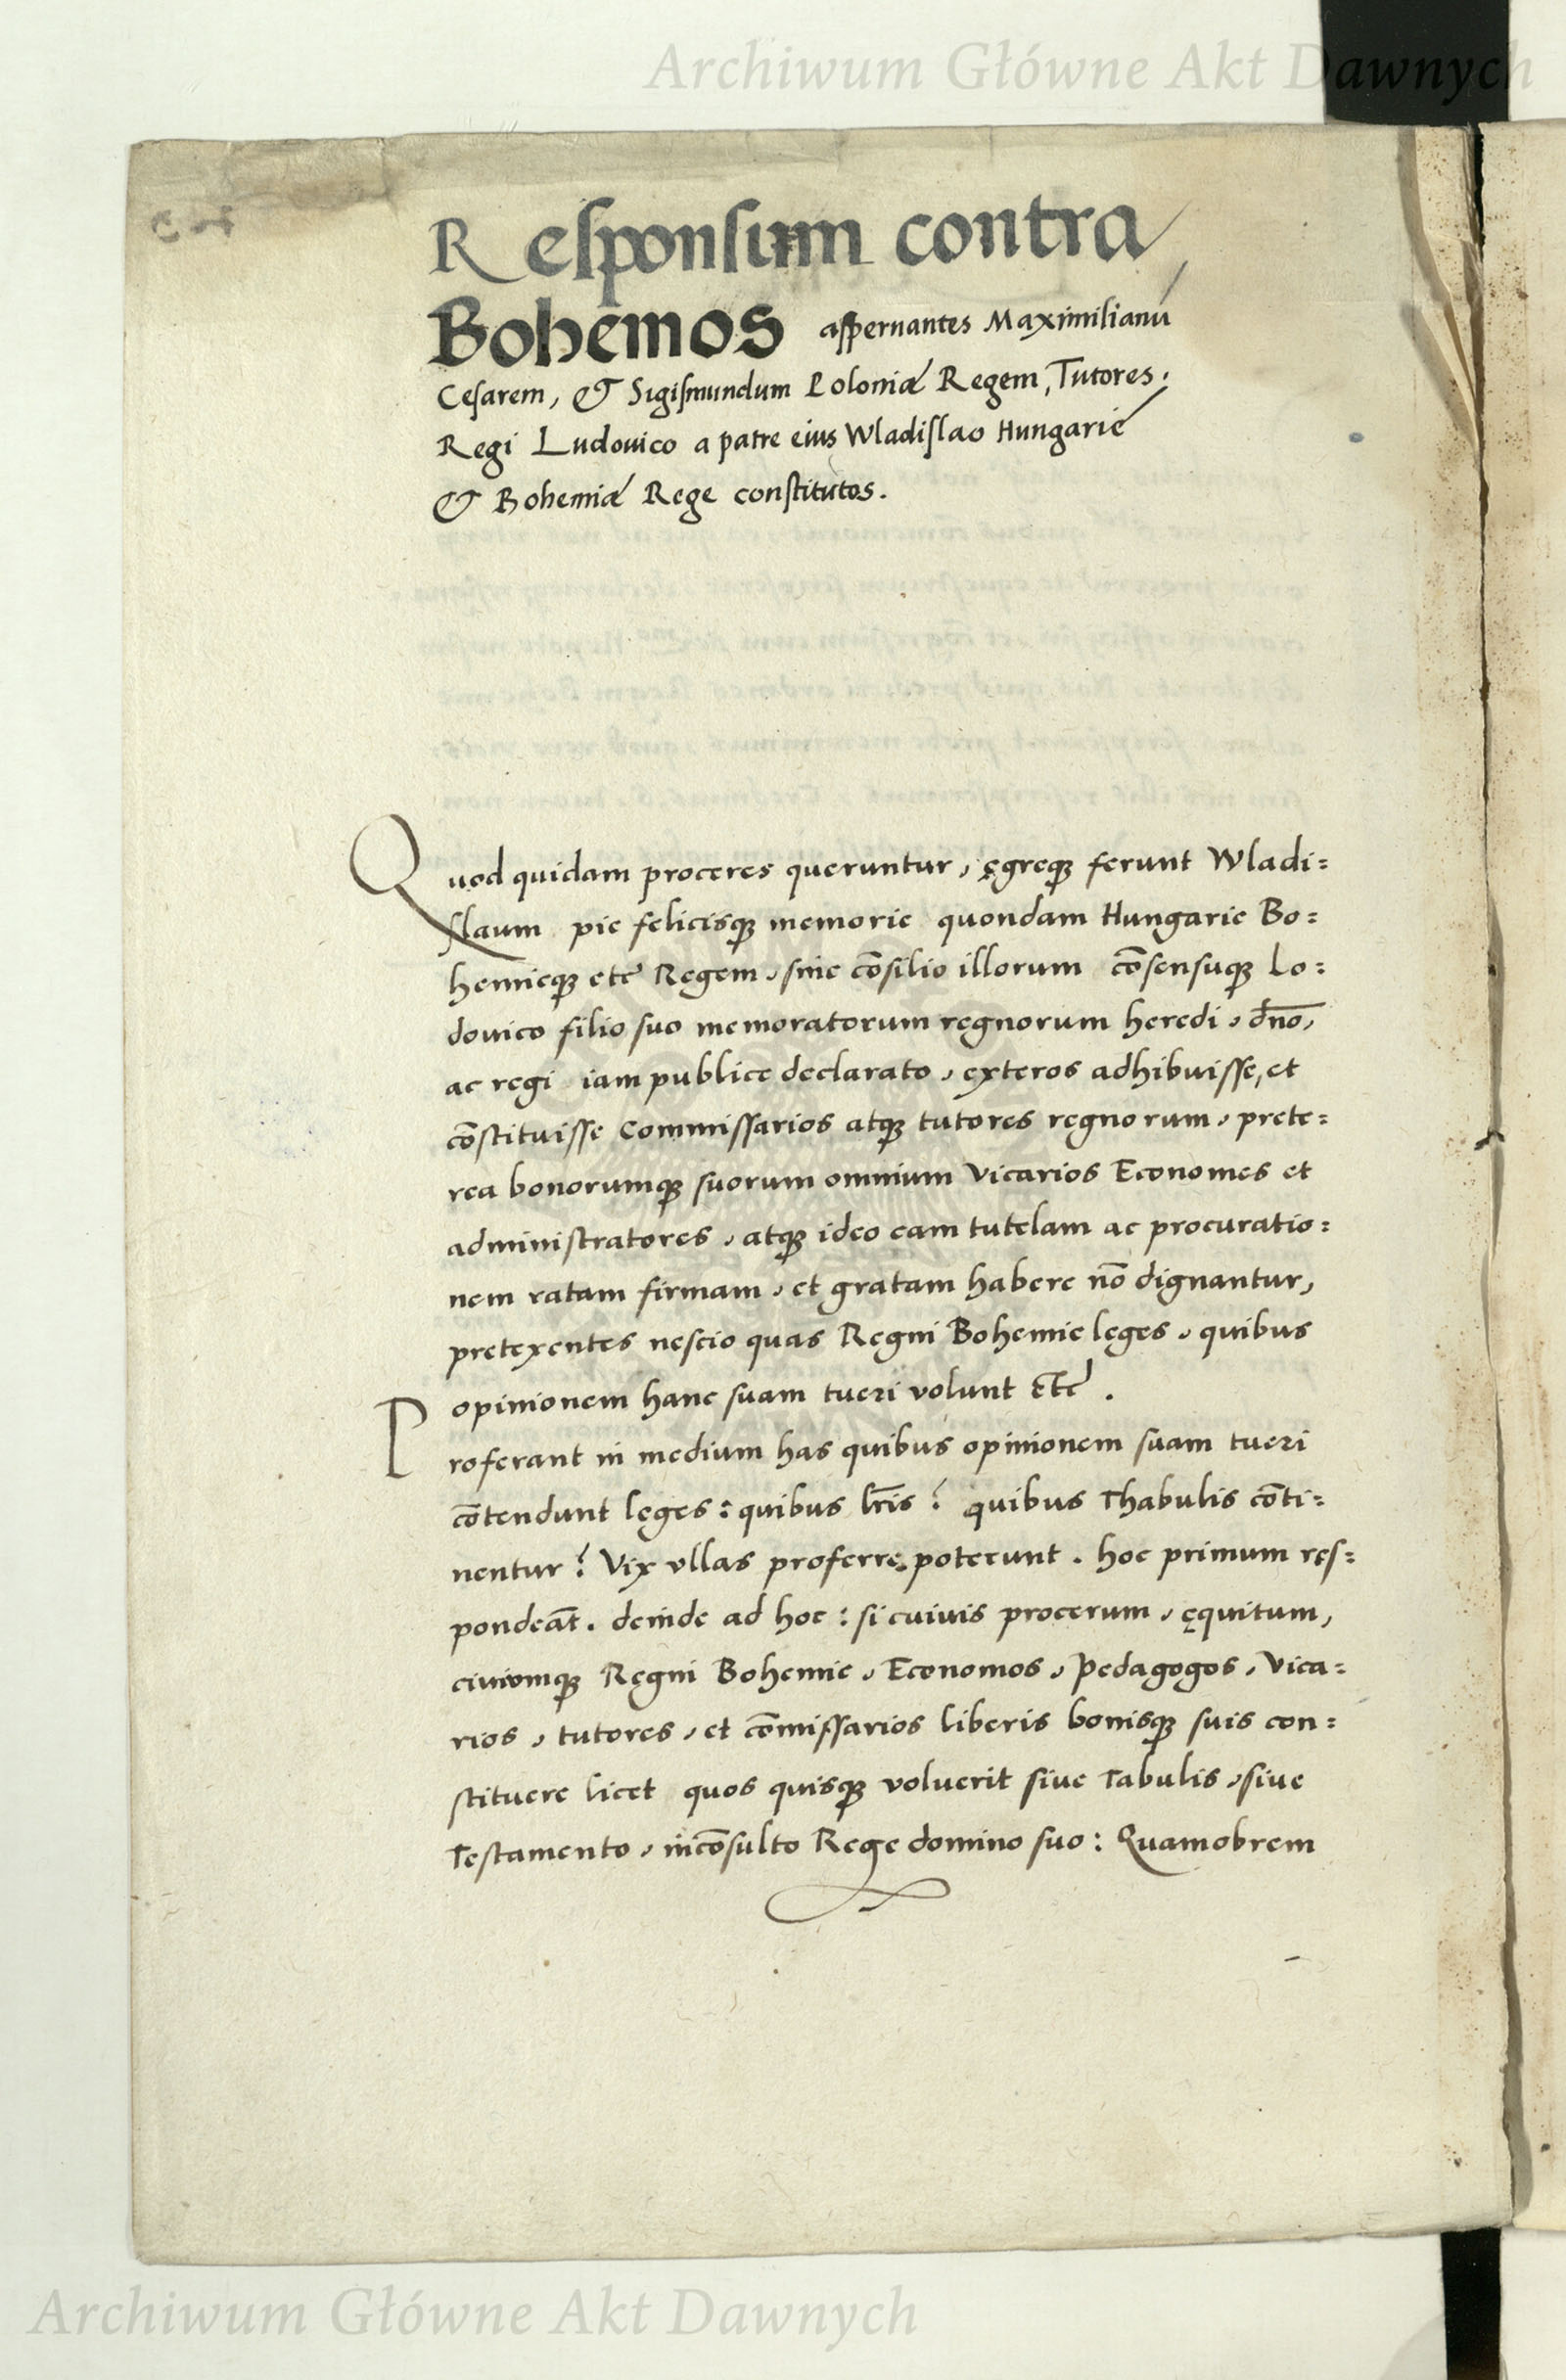 Archiwum Główne Akt Dawnych
Responsum contra
Bohemos aspernantes Maximilianū
Cesarem, & Sigismundum Poloniæ Regem, Tutores,
Regi Ludouico a patre eius Wladislao Hungarię
& Bohemiæ Rege constitutos.
Quod quidam proceres queruntur, ęgreqꝫ ferunt Wladi=
slaum pie felicisqꝫ memorie quondam Hungarie Bo=
hemieqꝫ etc̄ Regem, sine cōsilio illorum cōsensuqꝫ Lo=
douico filio suo memoratorum regnorum heredi, dn̄o,
ac regi iam publice declarato, exteros adhibuisse, et
cōstituisse Commissarios atqꝫ tutores regnorum, prete=
rea bonorumqꝫ suorum omnium Vicarios Economes et
administratores, atqꝫ ideo eam tutelam ac procuratio=
nem ratam firmam, et gratam habere nō dignantur,
pretexentes nescio quas Regni Bohemie leges, quibus
opinionem hanc suam tueri volunt etc̄.
Proferant in medium has quibus opinionem suam tueri
cōtendunt leges: quibus lr̄is? quibus Thabulis cōti=
nentur? Vix vllas proferre poterunt. hoc primum res=
pondeāt. deinde ad hoc: si cuiuis procerum, ęquitum,
ciuiumqꝫ Regni Bohemie, Economos, Pedagogos, Vica=
rios, tutores, et cōmissarios liberis bonisqꝫ suis con=
stituere licet quos quisqꝫ voluerit siue Tabulis, siue
Testamento, incōsulto Rege domino suo: Quamobrem
Archiwum Główne Akt Dawnych